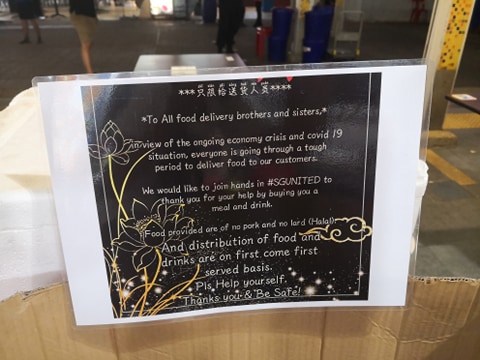 ***只限给送货人员****
*To All food delivery brothers and sisters,*
In view of the ongoing economy crisis and covid 19
situation, everyone is going through a tough
period to deliver food to our customers.
We would like to join hands in #SGUNITED to
thank you for your help by buying you a
meal and drink.
Food provided are of no pork and no lard (Halal)
And distribution of food and
drinks are on first come first
served basis.
Pls Help yourself.
Thanks you & Be Safe!